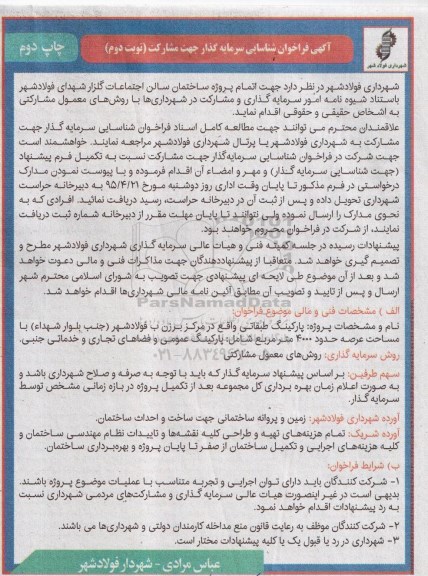 آگهی فراخوان شناسایی سرمایه گذار جهت مشارکت (نوبت دوم)
چاپ دوم
شهرداری فولاد شهر
شهرداری فولادشهر در نظر دارد جهت اتمام پروژه ساختمان سالن اجتماعات گلزار شهدای فولادشهر
باستناد شیوه نامه امور سرمایه گذاری و مشارکت در شهرداری‌ها با روش‌های معمول مشارکتی
به اشخاص حقیقی و حقوقی اقدام نماید.
علاقمندان محترم می توانند جهت مطالعه کامل اسناد فراخوان شناسایی سرمایه گذار جهت
مشارکت به شهرداری فولادشهر یا پرتال شهرداری فولادشهر مراجعه نمایند. خواهشمند است
جهت شرکت در فراخوان شناسایی سرمایه‌گذار جهت مشارکت نسبت به تکمیل فرم پیشنهاد
(جهت شناسایی سرمایه گذار) و مهر و امضاء آن اقدام فرموده و با پیوست نمودن مدارک
درخواستی در فرم مذکور تا پایان وقت اداری روز دوشنبه مورخ ۹۵/۴/۲۱ به دبیرخانه حراست
شهرداری تحویل داده و پس از ثبت آن در دبیرخانه حراست، رسید دریافت نمائید. افرادی که به
نحوی مدارک را ارسال نموده ولی نتوانند تا پایان مهلت مقرر از دبیرخانه شماره ثبت دریافت
نمایند، از شرکت در فراخوان محروم خواهند بود.
پیشنهادات رسیده در جلسه کمیته فنی و هیات عالی سرمایه گذاری شهرداری فولادشهر مطرح و
تصمیم گیری خواهد شد. متعاقبا از پیشنهاددهندگان جهت مذاکرات فنی و مالی دعوت خواهد
شد و بعد از آن موضوع طی لایحه ای پیشنهادی جهت تصویب به شورای اسلامی محترم شهر
ارسال و پس از تایید و تصویب آن مطابق آئین نامه مالی شهرداری‌ها اقدام خواهد شد.
الف ) مشخصات فنی و مالی موضوع فراخوان:
ParsNamadData
نام و مشخصات پروژه: پارکینگ طبقاتی واقع در مرکز برزن ب فولادشهر (جنب بلوار شهداء) با
مساحت عرصه حدود ۴۰۰۰ متر مربع شامل: پارکینگ عمومی و فضاهای تجاری و خدماتی جنبی.
روش سرمایه گذاری: روش‌های معمول مشارکتی
سهم طرفین: بر اساس پیشنهاد سرمایه گذار که باید با توجه به صرفه و صلاح شهرداری باشد و
به صورت اعلام زمان بهره برداری کل مجموعه بعد از تکمیل پروژه در بازه زمانی مشخص توسط
سرمایه گذار.
آورده شهرداری فولادشهر: زمین و پروانه ساختمانی جهت ساخت و احداث ساختمان.
آورده شریک: تمام هزینه‌های تهیه و طراحی کلیه نقشه‌ها و تاییدات نظام مهندسی ساختمان و
کلیه هزینه‌های اجرایی و تکمیل ساختمان از صفر تا پایان پروژه و بهره‌برداری ساختمان.
ب) شرایط فراخوان:
۱- شرکت کنندگان باید دارای توان اجرایی و تجربه متناسب با عملیات موضوع پروژه باشند.
بدیهی است در غیر اینصورت هیات عالی سرمایه گذاری و مشارکت‌های مردمی شهرداری نسبت
به رد پیشنهادات اقدام خواهد نمود.
۲- شرکت کنندگان موظف به رعایت قانون منع مداخله کارمندان دولتی و شهرداری‌ها می باشند.
۳- شهرداری در رد یا قبول یک یا کلیه پیشنهادات مختار است.
عباس مرادی - شهردار فولادشهر